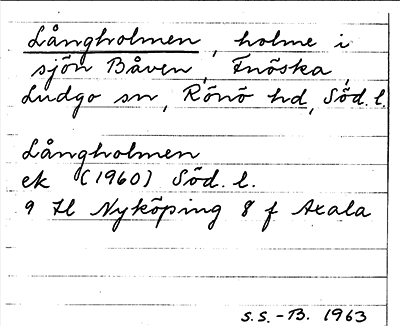 Långholmen, holme i
sjön Båven, Fnöska,
Ludgo sn, Rönö hd, Söd. l.
Långholmen
ek (1960) Söd. l.
9 H Nyköping 8 f Axala
S.S.-B. 1963